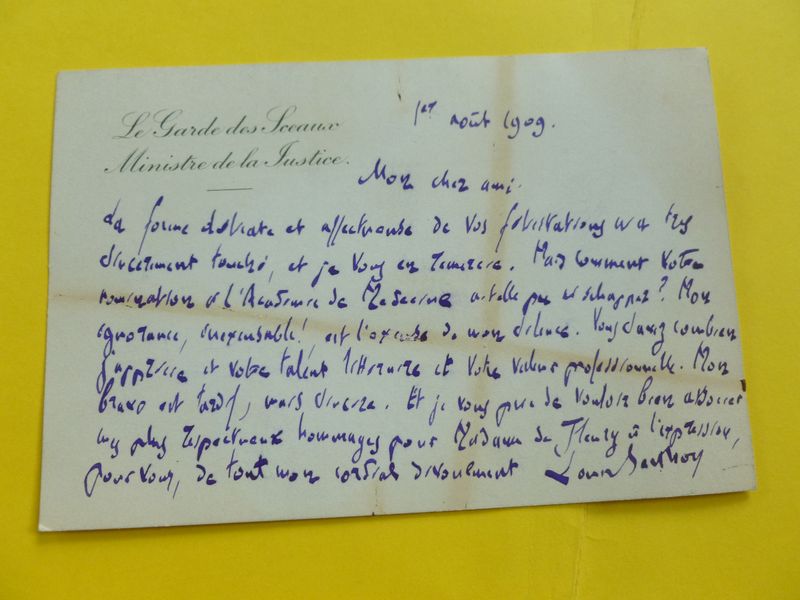 Le Garde des Sceaux
Ministre de la Justice.
1er août 1909.
Mon cher ami.
La forme délicate et affectueuse de vos félicitations m'a très
sincèrement touché, et je vous en remercie. Mais comment votre
nomination à l'Académie de Médecine a-t-elle pu m'échapper? Mon
ignorance, inexcusable!, est l'excuse de mon silence. Vous savez combien
j'apprécie et votre talent littéraire et votre valeur professionnelle. Mon
bravo est tardif, mais sincère. Et je vous prie de vouloir bien associer
mes plus respectueux hommages pour Madame de Fleury à l'expression,
pour vous, de tout mon cordial dévouement Louis Barthou